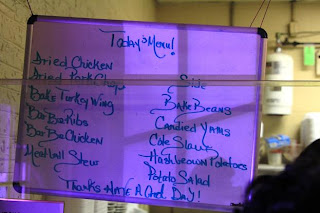 Today's Menu!
Dried Chicken
Dried PorkChop
Bake Turkey Wing
BarBaRibs
BarBaChicken
Meatball Stew
Side
Bake Beans
Candied Yams
Cole Slaw
Hashbrown Potatoes
Potato Salad
Thanks Have A Good Day!